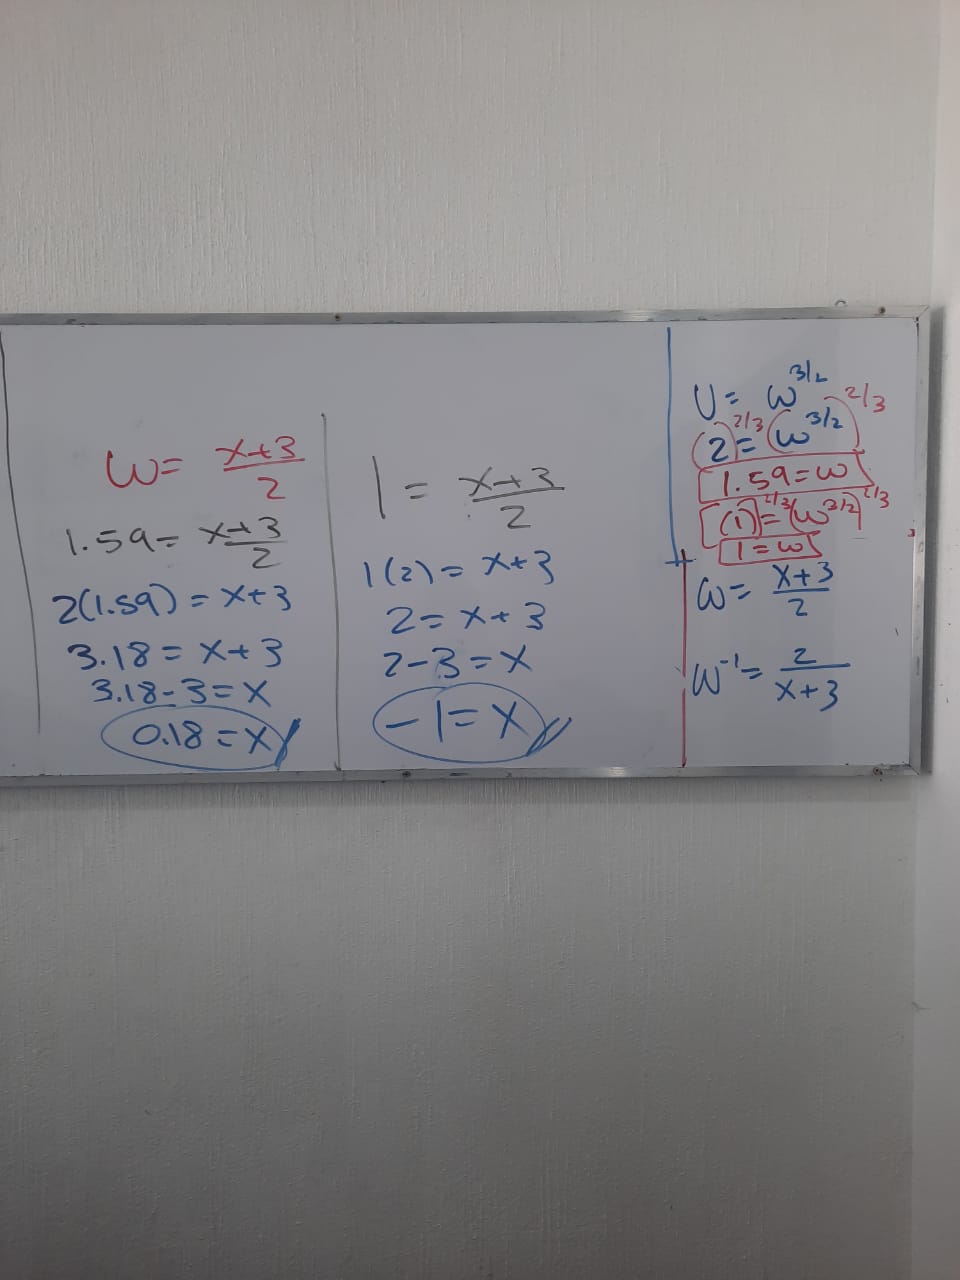 ω = x+3/2
1.59 = x+3/2
2(1.59) = x+3
3.18 = x+3
3.18-3 = x
0.18 = x
1 = x+3/2
1(2) = x+3
2 = x+3
2-3 = x
-1 = x
U = ω^3/2
(2)^2/3 = (ω^3/2)^2/3
1.59 = ω
(1)^2/3 = (ω^3/2)^2/3
1 = ω
ω = x+3/2
ω^-1 = 2/x+3